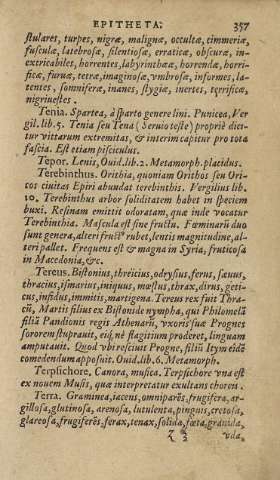 EPITHETA. 357
stulares, turpes, nigræ, malignæ, occultæ, cimmeriæ,
fusculæ, latebrosæ, silentiosæ, erraticæ, obscuræ, in-
extricabiles, horrentes, labyrinthææ, horrendæ, horri-
ficæ, furuæ, tetræ, imaginosæ, vmbrosæ, informes, la-
tentes, somniferæ, inanes, stygiæ, inertes, terrificæ,
nigriuestes.
Tenia. Spartea, à sparto genere lini. Punicea, Ver
gil. lib. 5. Tenia seu Tena (Seruio teste) propriè dici-
tur vittarum extremitas, & interim capitur pro tota
fascia. Est etiam pisciculus.
Tepor. Lenis, Ouid. lib. 2. Metamorph. placidus.
Terebinthus. Orithia, quoniam Orithos seu Ori-
cos ciuitas Epiri abundat terebinthis. Vergilius lib.
10. Terebinthus arbor soliditatem habet in speciem
buxi. Resinam emittit odoratam, quæ inde vocatur
Terebinthia. Mascula est sine fructu. Fœminarū duo
sunt genera, alteri fruct° rubet, lentis magnitudine, al-
teri pallet. Frequens est & magna in Syria, fruticosa
in Macedonia, &c.
Tereus. Bistonius, threicius, odrysius, ferus, sæuus,
thracius, ismarius, iniquus, mœstus, thrax, dirus, geti-
cus, infidus, immitis, martigena. Tereus rex fuit Thra-
cū, Martis filius ex Bistonide nympha, qui Philomelā
filiā Pandionis regis Athenarū, vxoris suæ Prognes
sororem stuprauit, eiq́ né flagitium proderet, linguam
amputauit. Quod vbi resciuit Progne, filiū Itym eidē
comedendum apposuit. Ouid. lib. 6. Metamorph.
Terpsichore. Canora, musica. Terpsichore vna est
ex nouem Musis, quæ interpretatur exultans choreis.
Terra. Graminea, iacens, omniparēs, frugifera, ar-
gillosa, glutinosa, arenosa, lutulenta, pinguis, cretosa,
glareosa, frugiferēs, ferax, tenax, solida, fœta, grauida,
Z 2 vda,